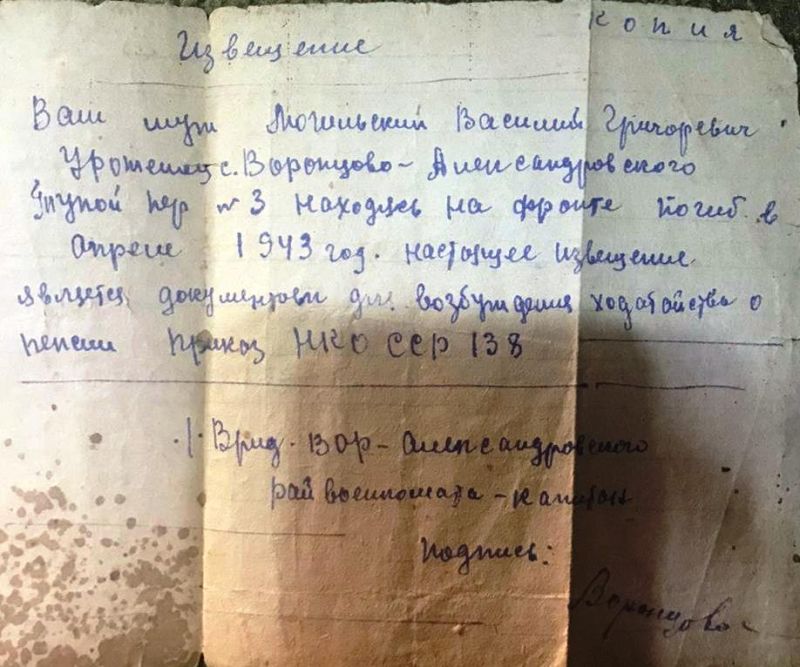 Копия
Извещение
Ваш муж Могильский Василий Григоревич
Уроженец с. Воронцово-Александровского
Тупой пер №3 находясь на фронте погиб в
апреле 1943 год. настоящее извещение
является документом для возбуждения ходатайства о
пенсии приказ НКО ССР 138
Врид. Вор-Александровского
райвоенкомата - капитан
подпись: